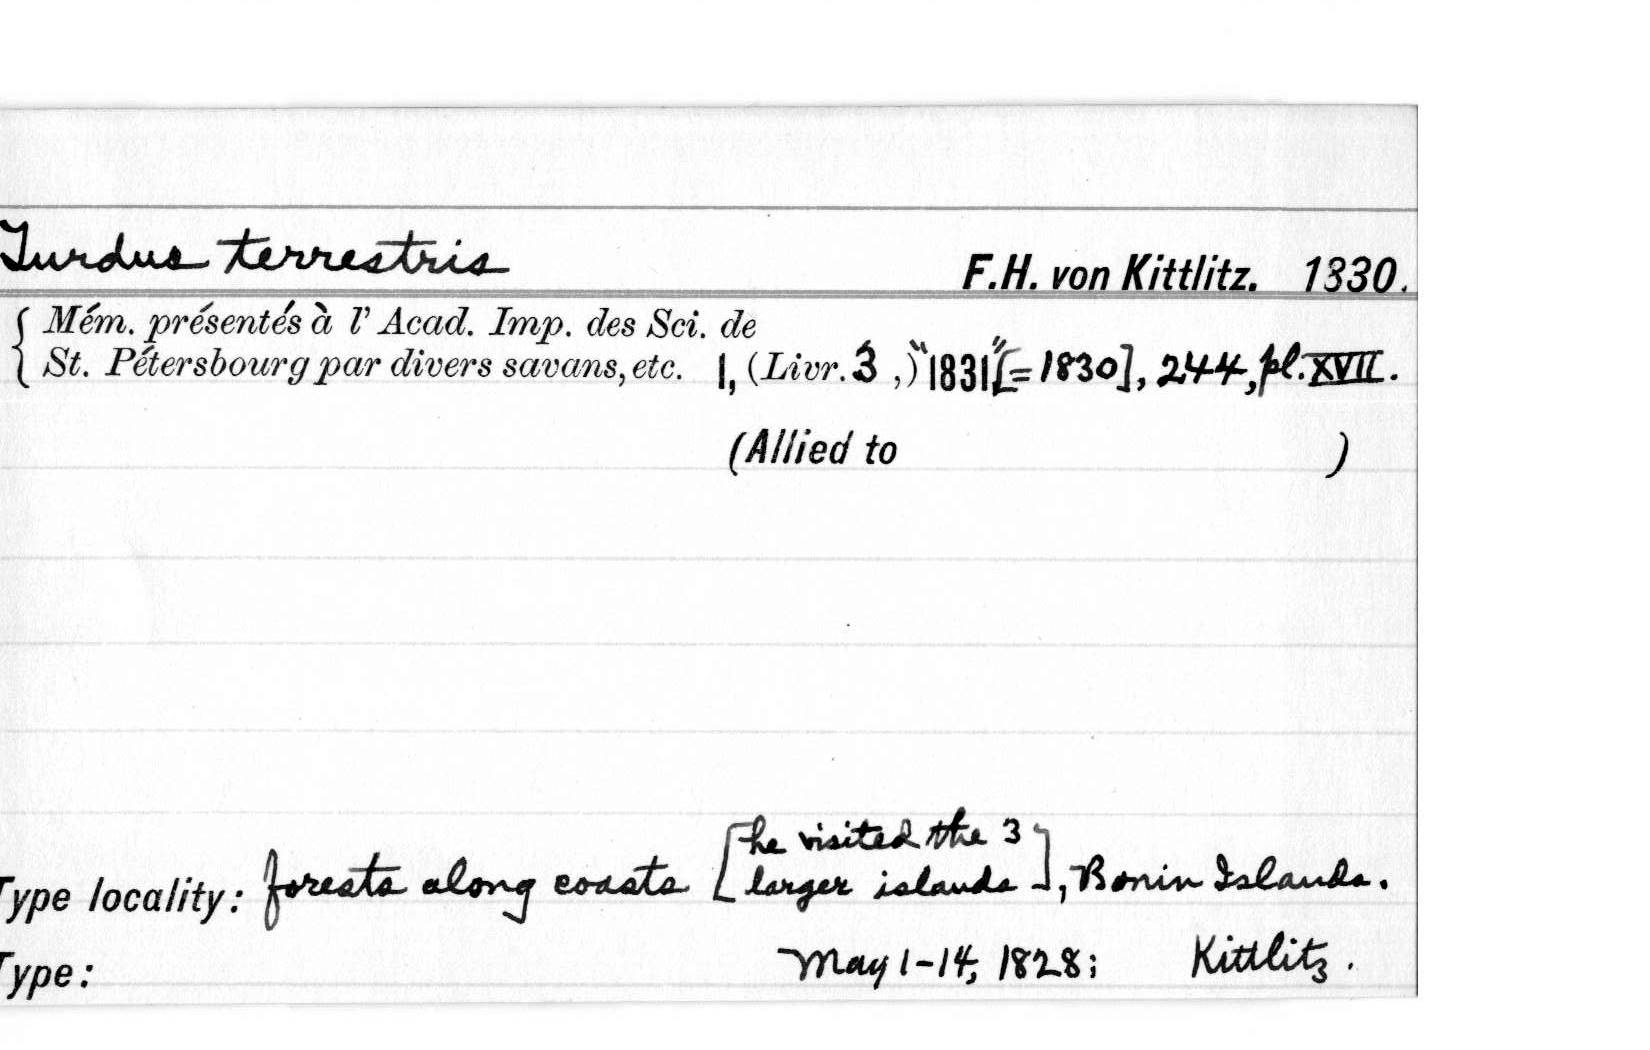 Turdus terrestris F.H. von Kittlitz. 1830.
{ Mém. présentés à l' Acad. Imp. des Sci. de
St. Pétersbourg par divers savans, etc. 1, (Livr. 3 ,) "1831" [= 1830], 244, pl. XVII.
(Allied to )
[he visited the 3
Type locality: forests along coasts larger islands], Bonin Islands.
Type: May 1-14, 1828; Kittlitz.